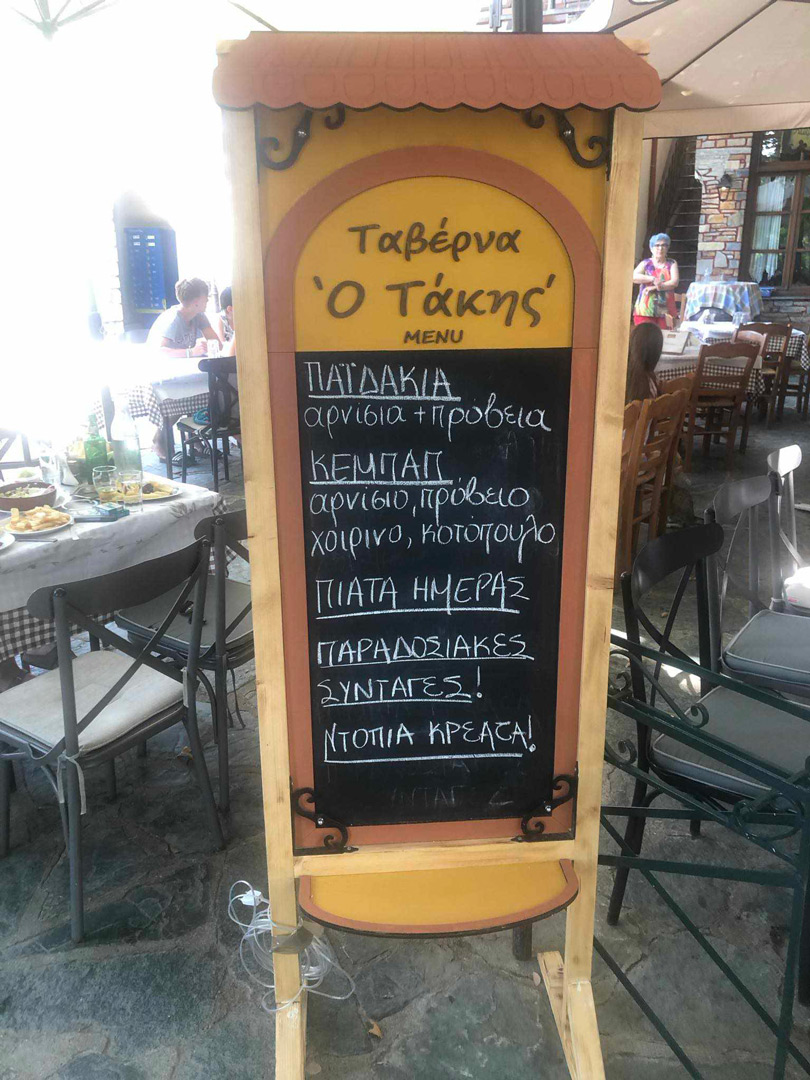 Ταβέρνα
'Ο Τάκης'
MENU
ΠΑΪΔΑΚΙΑ
αρνίσια + πρόβεια
ΚΕΜΠΑΠ
αρνίσιο, πρόβειο
χοιρινο, κοτόπουλο
ΠΙΑΤΑ ΗΜΕΡΑΣ
ΠΑΡΑΔΟΣΙΑΚΕΣ
ΣΥΝΤΑΓΕΣ!
ΝΤΟΠΙΑ ΚΡΕΑΤΑ!